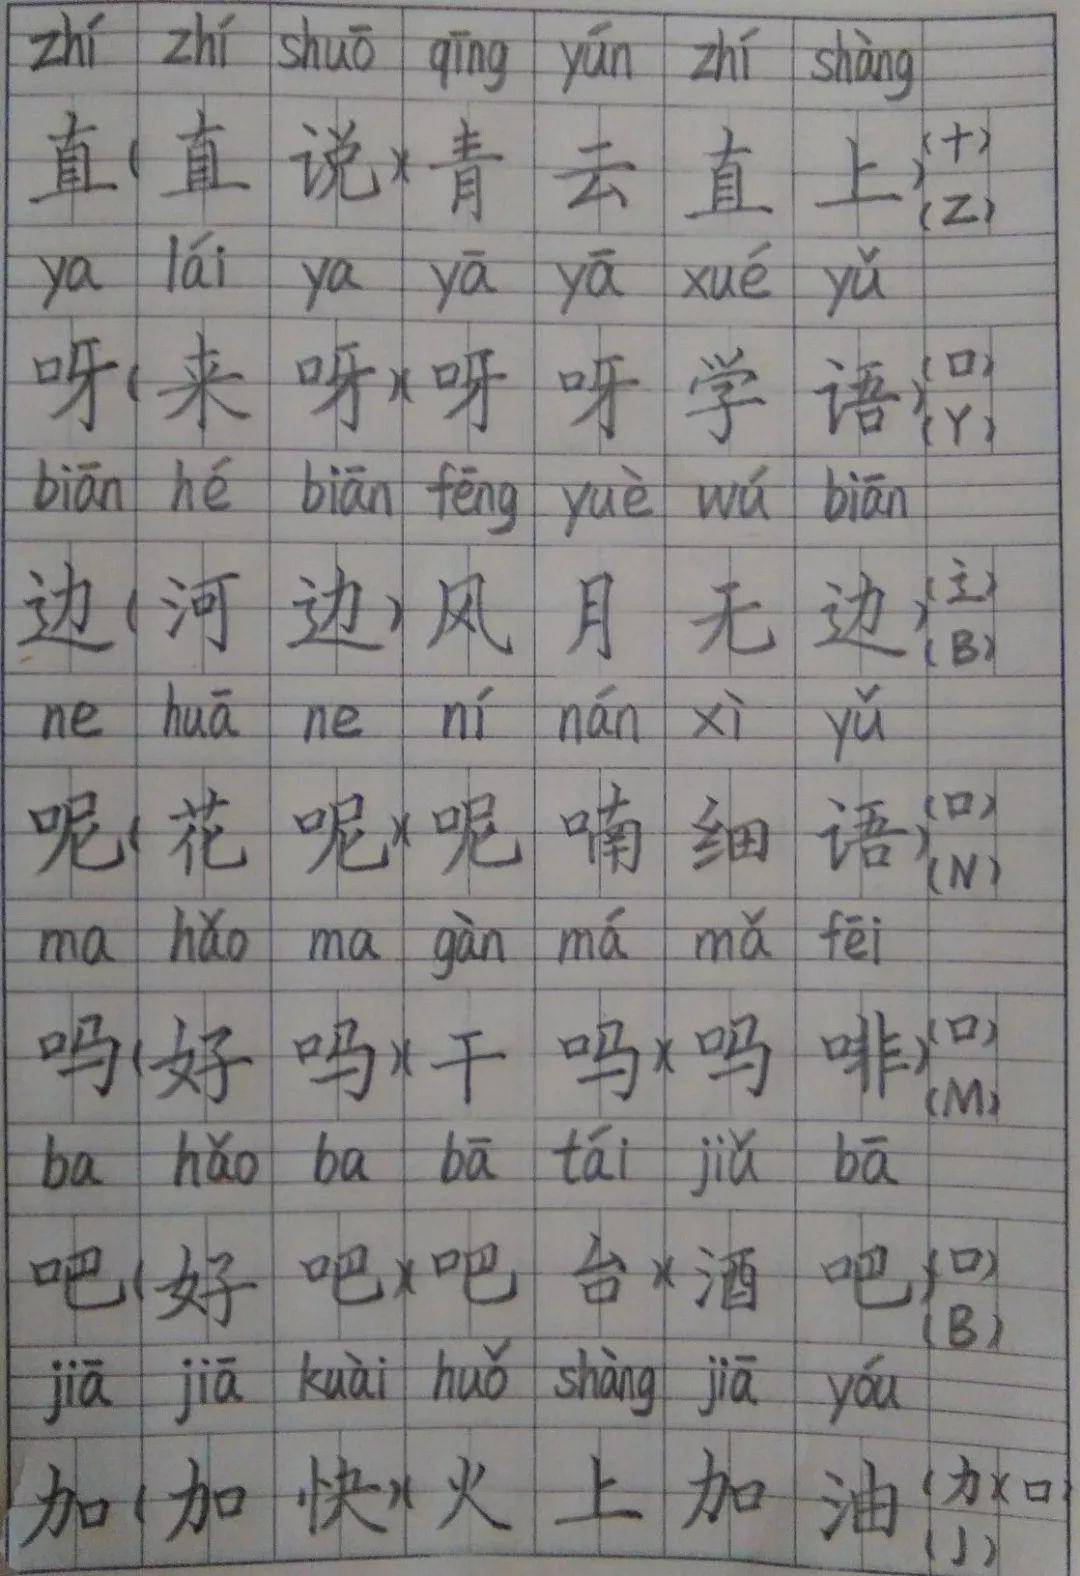 zhí zhí shuō qīng yún zhí shàng
直(直说)(青云直上)(十)(Z)
ya lái ya yā yā xué yǔ
呀(来呀)(呀呀学语)(口)(Y)
biān hé biān fēng yuè wú biān
边(河边)风月无边)(辶)(B)
ne huā ne ní nán xì yǔ
呢(花呢)(呢喃细语)(口)(N)
ma hǎo ma gàn má mǎ fēi
吗(好吗)(干吗)(吗啡)(口)(M)
ba hǎo ba bā tái jiǔ bā
吧(好吧)(吧台)(酒吧)(口)(B)
jiā jiā kuài huǒ shàng jiā yóu
加(加快)(火上加油(力)(口)(J)